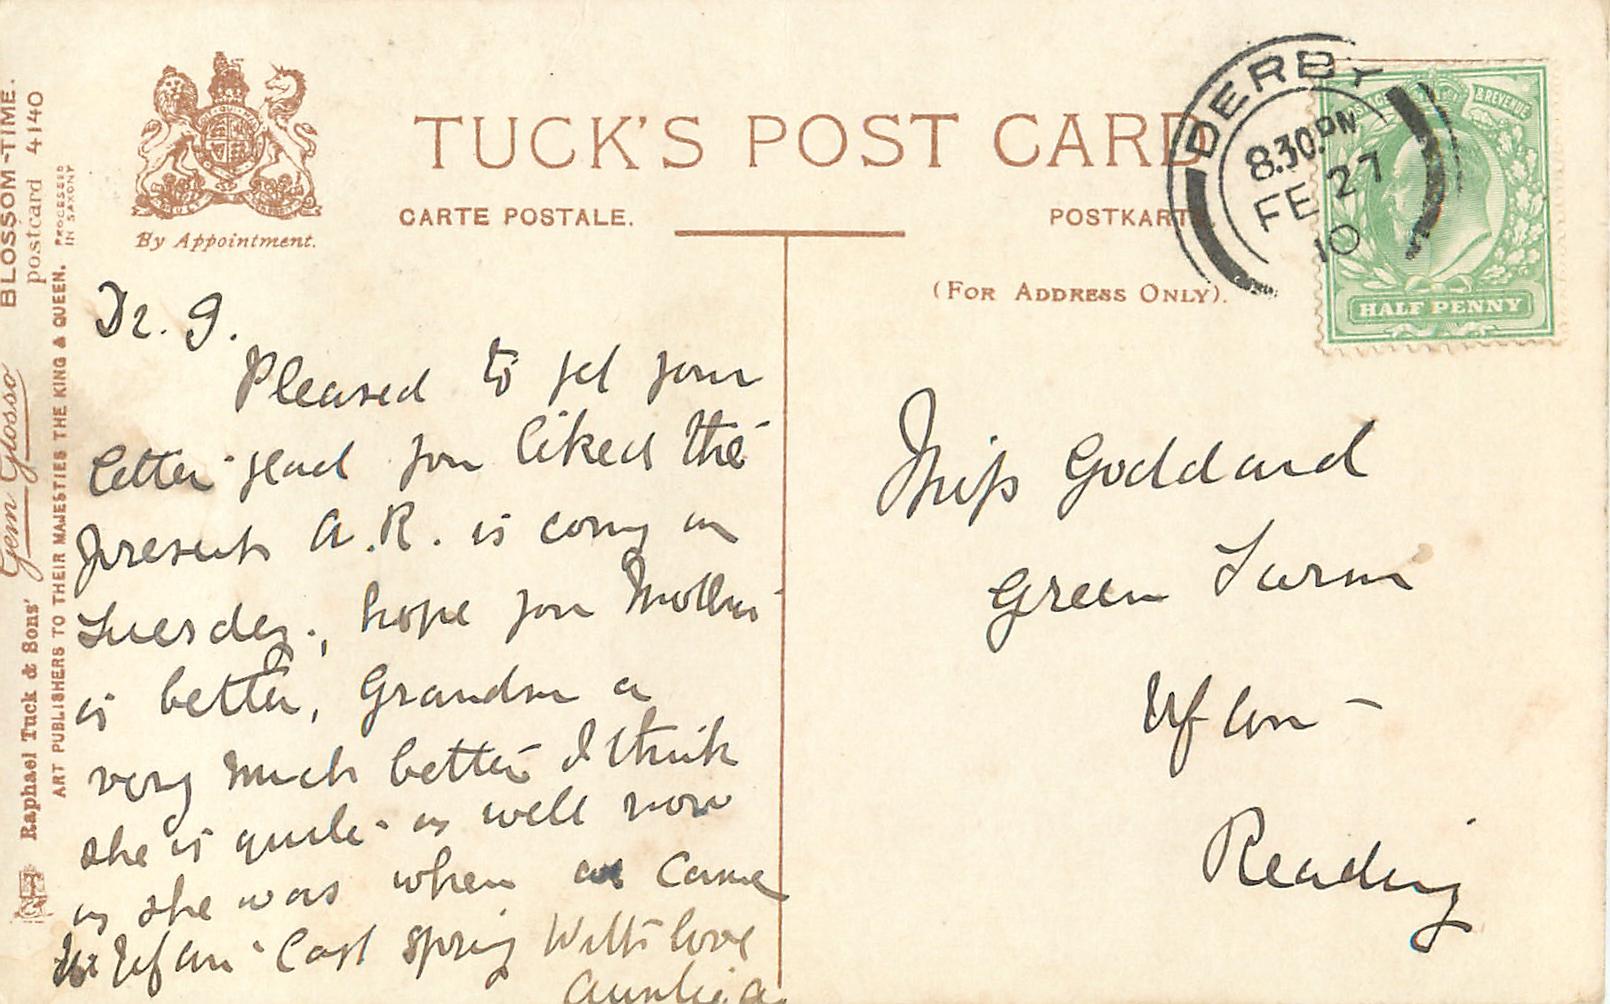 BLOSSOM-TIME.
postcard 4140
Gem Glosso
Raphael Tuck & Sons'
ART PUBLISHERS TO THEIR MAJESTIES THE KING & QUEEN.
PROCESSED
IN SAXONY
By Appointment.
TUCK'S POST CARD
CARTE POSTALE.
POSTKARTE.
(FOR ADDRESS ONLY).
DERBY
8.30 PM
FE 27
10
POSTAGE & REVENUE
HALF PENNY
Dr. G.
Pleased to get your
letter glad you liked the
present A.R. is comg on
Tuesday, hope your Mother
is better, Grandma a
very much better I think
she is quite as well now
as she was when we came
to Ufton last spring With love
Auntie A.
Miss Goddard
Green Farm
Ufton
Reading